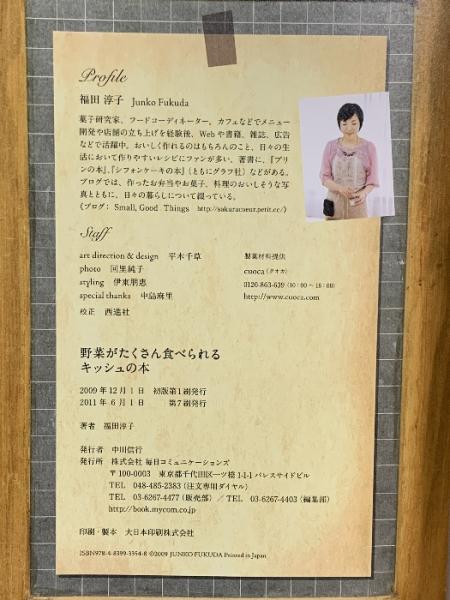 Profile
福田 淳子 Junko Fukuda
菓子研究家、フードコーディネーター。カフェなどでメニュー
開発や店舗の立ち上げを経験後、Webや書籍、雑誌、広告
などで活躍中。おいしく作れるのはもちろんのこと、日々の生
活において作りやすいレシピにファンが多い。著書に、『プリ
ンの本』、『シフォンケーキの本』(ともにグラフ社)などがある。
ブログでは、作ったお弁当やお菓子、料理のおいしそうな写
真とともに、日々の暮らしについて綴っている。
《ブログ：Small, Good Things http://sakuracoeur.petit.cc/》
Staff
art direction & design 平木千草
photo 回里純子
styling 伊東朋恵
special thanks 中島麻里
校正 西進社
製菓材料提供
cuoca(クオカ)
0120-863-639(10:00〜18:00)
http://www.cuoca.com
野菜がたくさん食べられる
キッシュの本
2009年12月1日 初版第1刷発行
2011年 6月1日 第7刷発行
著者 福田淳子
発行者 中川信行
発行所 株式会社 毎日コミュニケーションズ
〒100-0003 東京都千代田区一ツ橋1-1-1パレスサイドビル
TEL 048-485-2383(注文専用ダイヤル)
TEL 03-6267-4477(販売部) / TEL 03-6267-4403(編集部)
http://book.mycom.co.jp
印刷・製本 大日本印刷株式会社
ISBN978-4-8399-3354-8 ©2009 JUNKO FUKUDA Printed in Japan